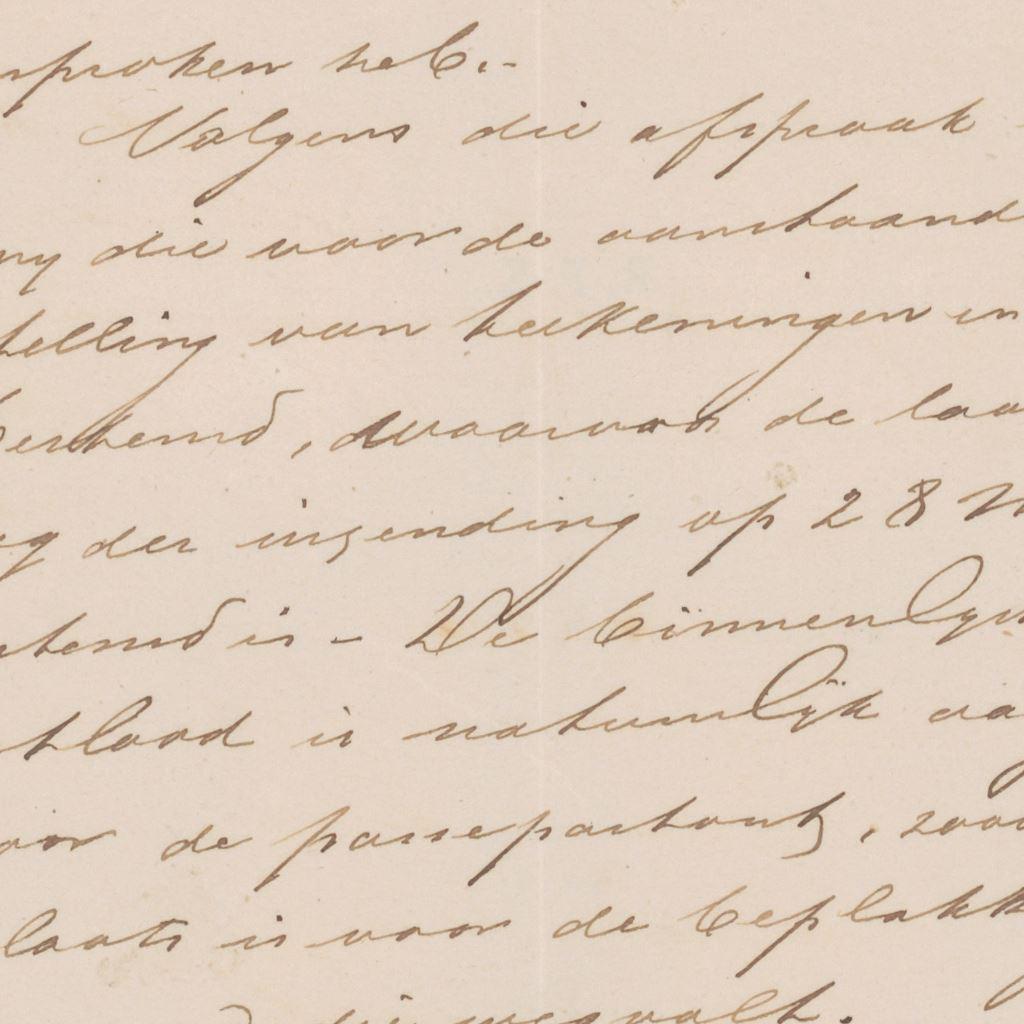 sproken heb.-
Volgens die afspraak -
my die voor de aanstaand
telling van teekeningen in
bestemd, waarvoor de laa
ag der inzending op 28 M
stemd is - De binnenlijn
tblaad is natuurlijk
oor de passepartouts, zooa
laats is voor de beplakk
die wegvalt.